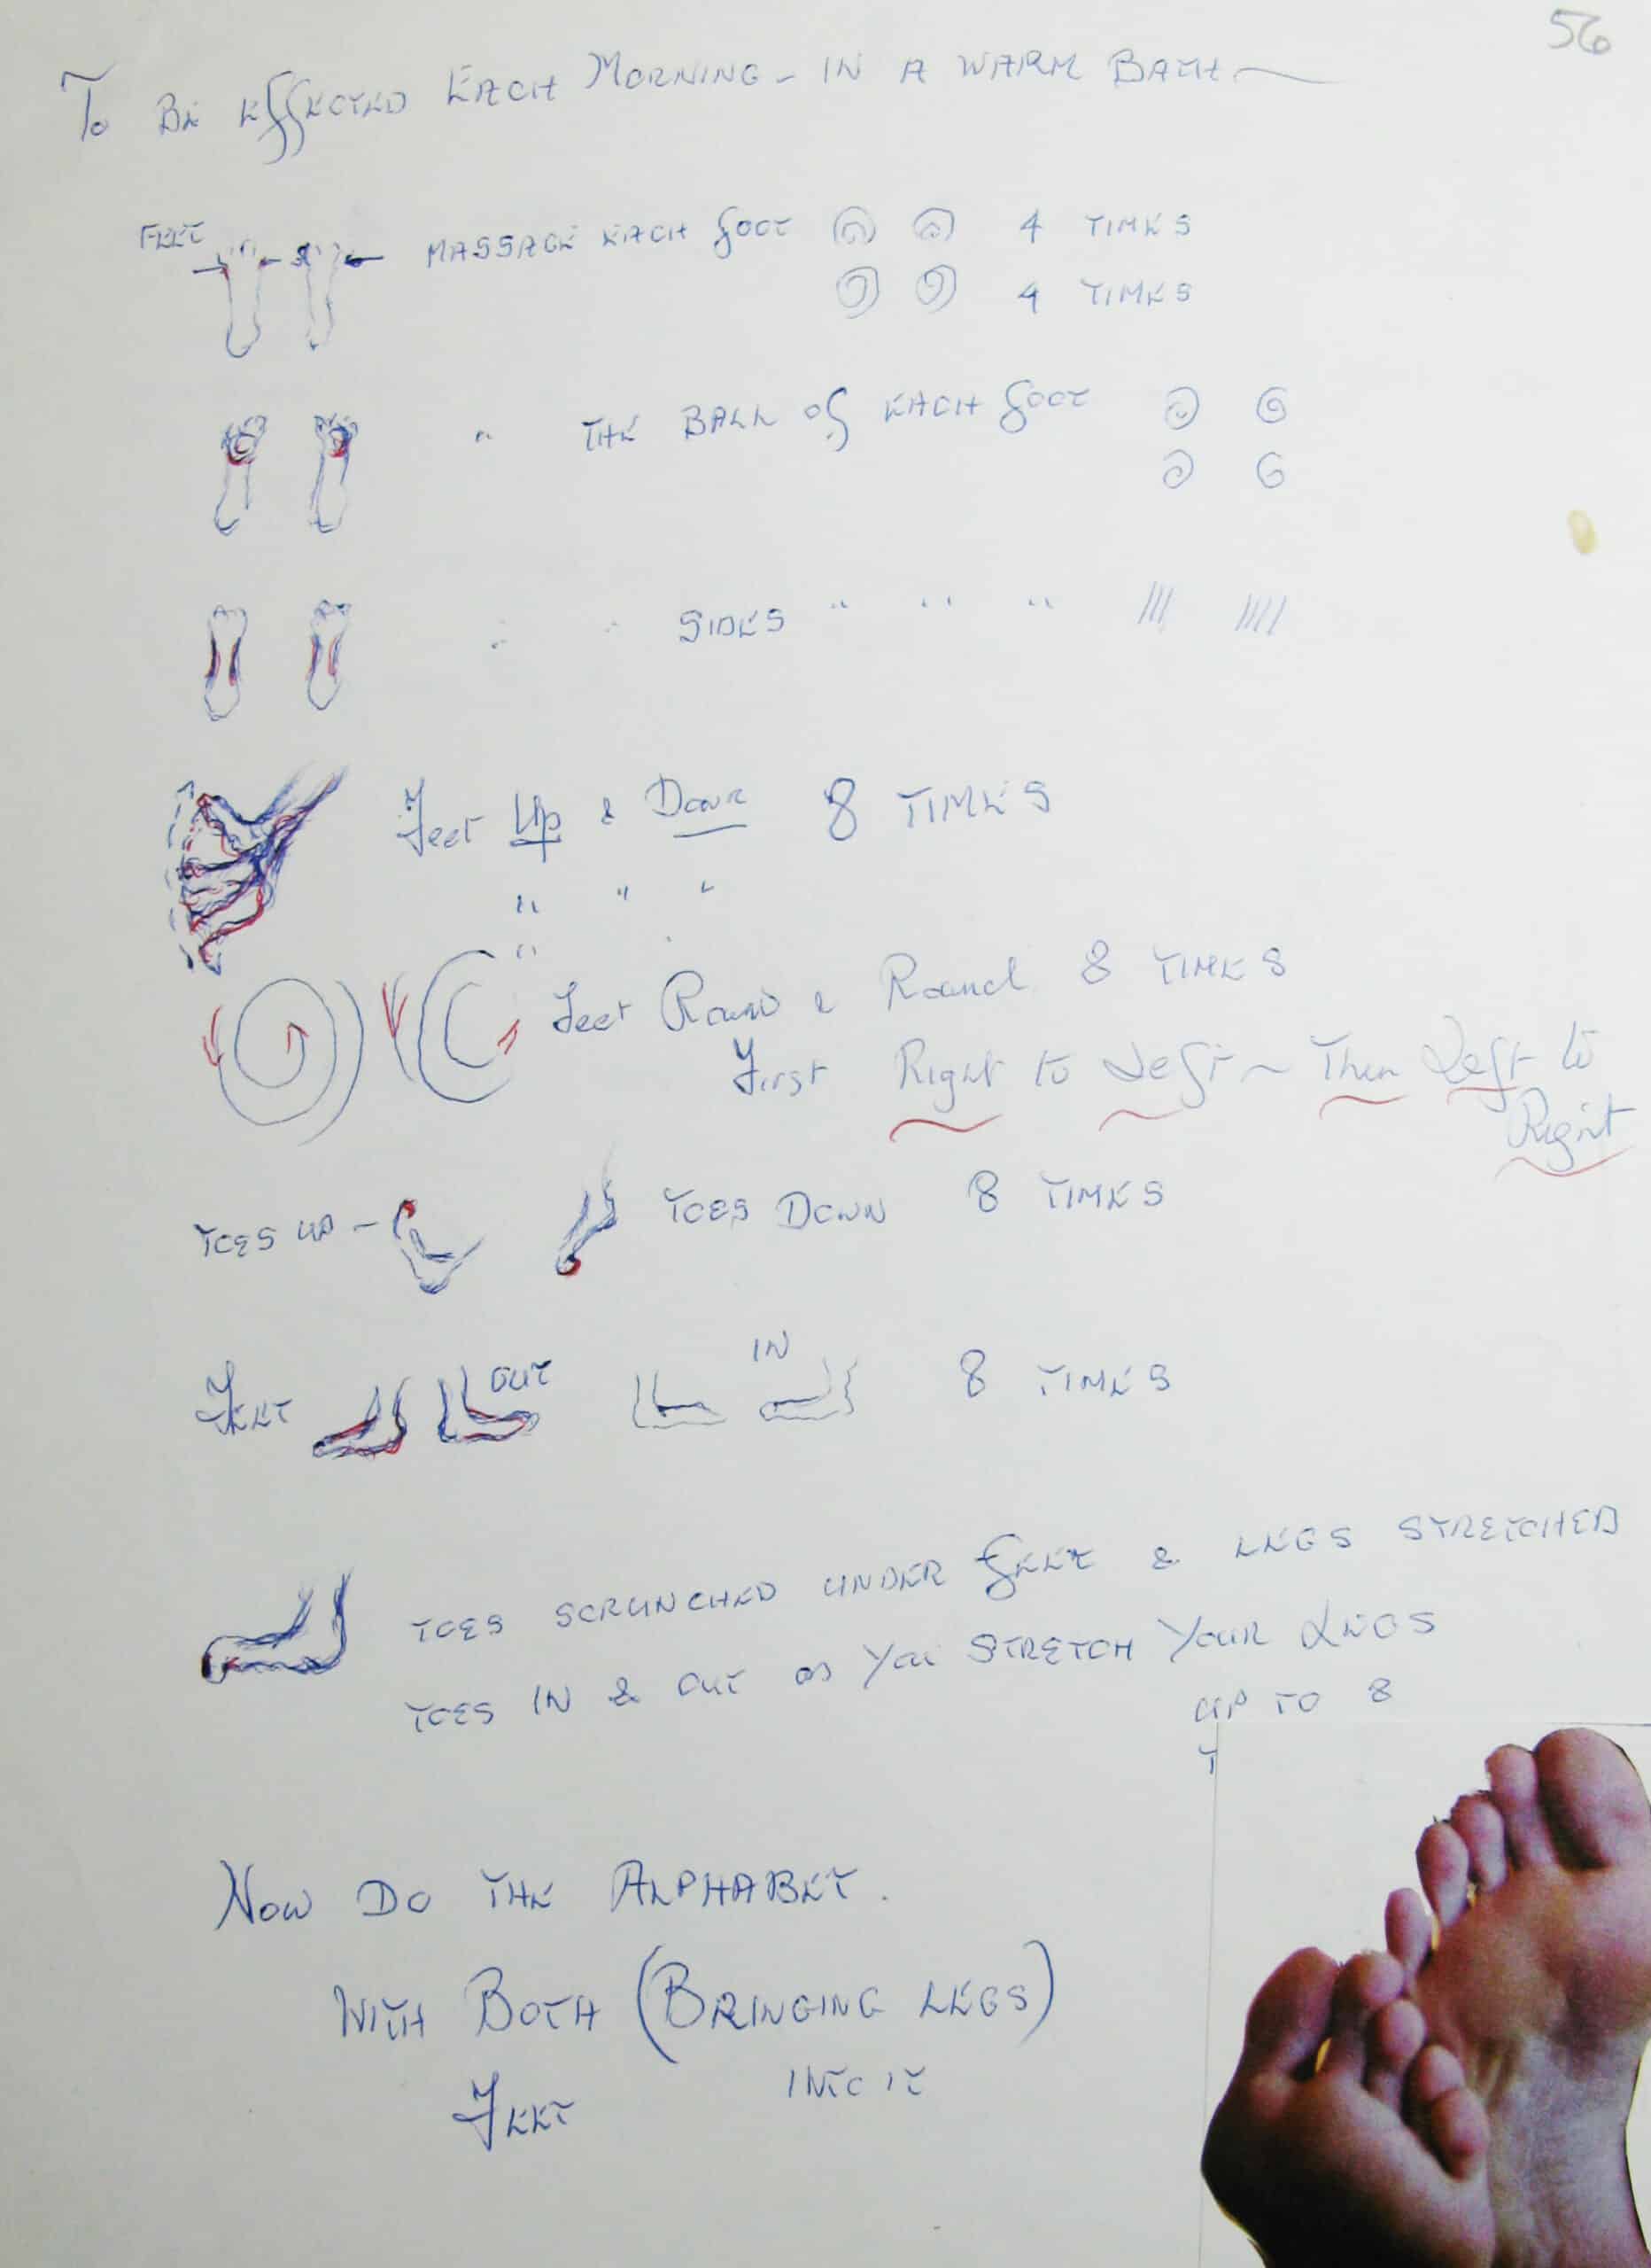 56
To BE EFFECTED EACH MORNING - IN A WARM BATH
FEET MASSAGE EACH FOOT 4 TIMES
4 TIMES
" THE BALL OF EACH FOOT
" " SIDES " " "
Feet Up & Down 8 TIMES
" " "
"
Feet Round & Round 8 TIMES
First Right to Left ~ Then Left to
Right
TOES UP - TOES DOWN 8 TIMES
FEET OUT IN 8 TIMES
TOES SCRUNCHED UNDER FEET & LEGS STRETCHED
TOES IN & OUT as You STRETCH YOUR LEGS
UP TO 8
T
NOW DO THE ALPHABET.
WITH BOTH (BRINGING LEGS)
FEET INTO IT